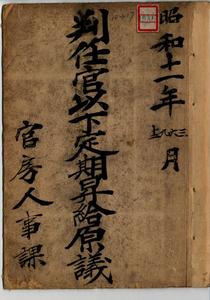 昭和十一年
三六九上月
判任官以下定期昇給原議
官房人事課